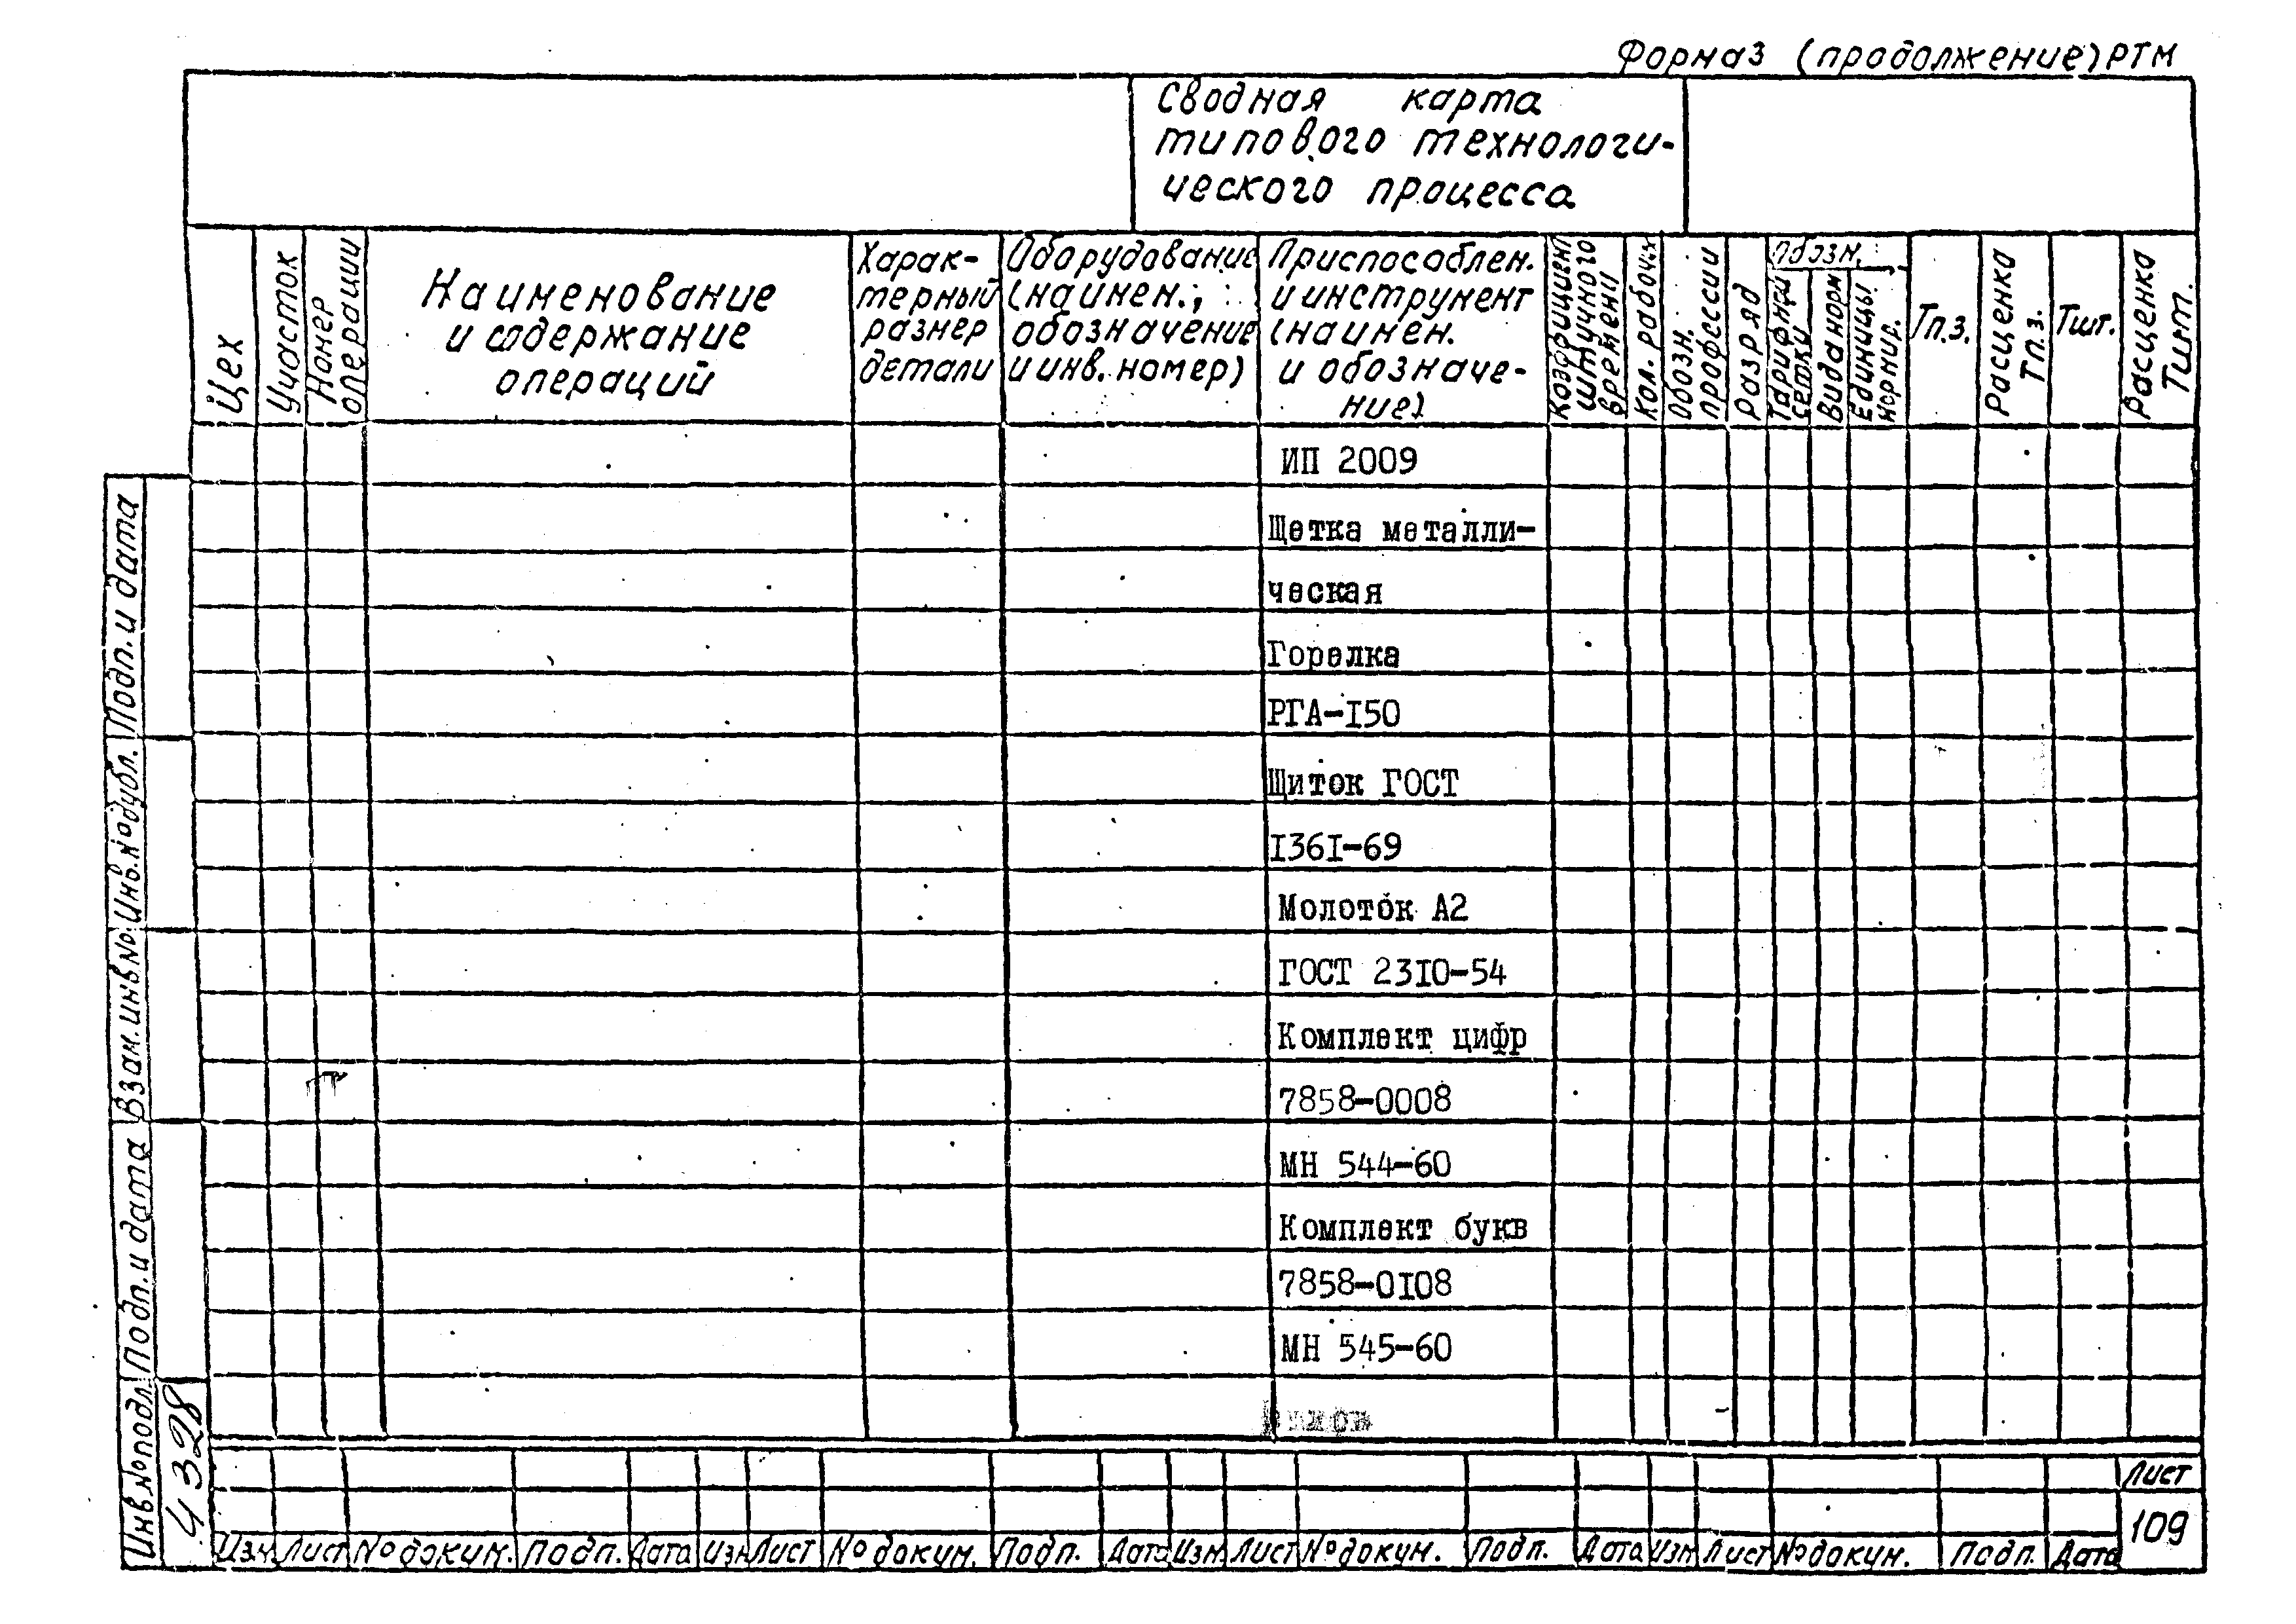 Форма3 (продолжение) РТМ
Сводная карта
типового технологи-
ческого процесса
Цех
Участок
Номер
операции
Наименование
и содержание
операций
Харак-
терный
размер
детали
Оборудование
(наимен.,
обозначение
и инв. номер)
Приспособлен.
и инструмент
(наимен.
и обозначе-
ние)
Коэффициент
штучного
времени
Кол. рабочих
Обозн.
профессии
Разряд
Обозн.
Тарифной
сетки
Вида норм
Единицы
нормир.
Тп.з.
Расценка
Тп.з.
Тшт.
Расценка
Тшт.
ИП 2009
Щетка металли-
ческая
Горелка
РГА-I50
Щиток ГОСТ
I36I-69
Молоток А2
ГОСТ 23I0-54
Комплект цифр
7858-0008
МН 544-60
Комплект букв
7858-0I08
МН 545-60
Подп. и дата
Инв. №дубл.
Взам. инв №
Подп. и дата
Инв. №подл.
4328
Изм Лист №докум. Подп. Дата Изм Лист №докум. Подп. Дата Изм. Лист №докум. Подп. Дата Изм Лист №докум. Подп. Дата
Лист
109